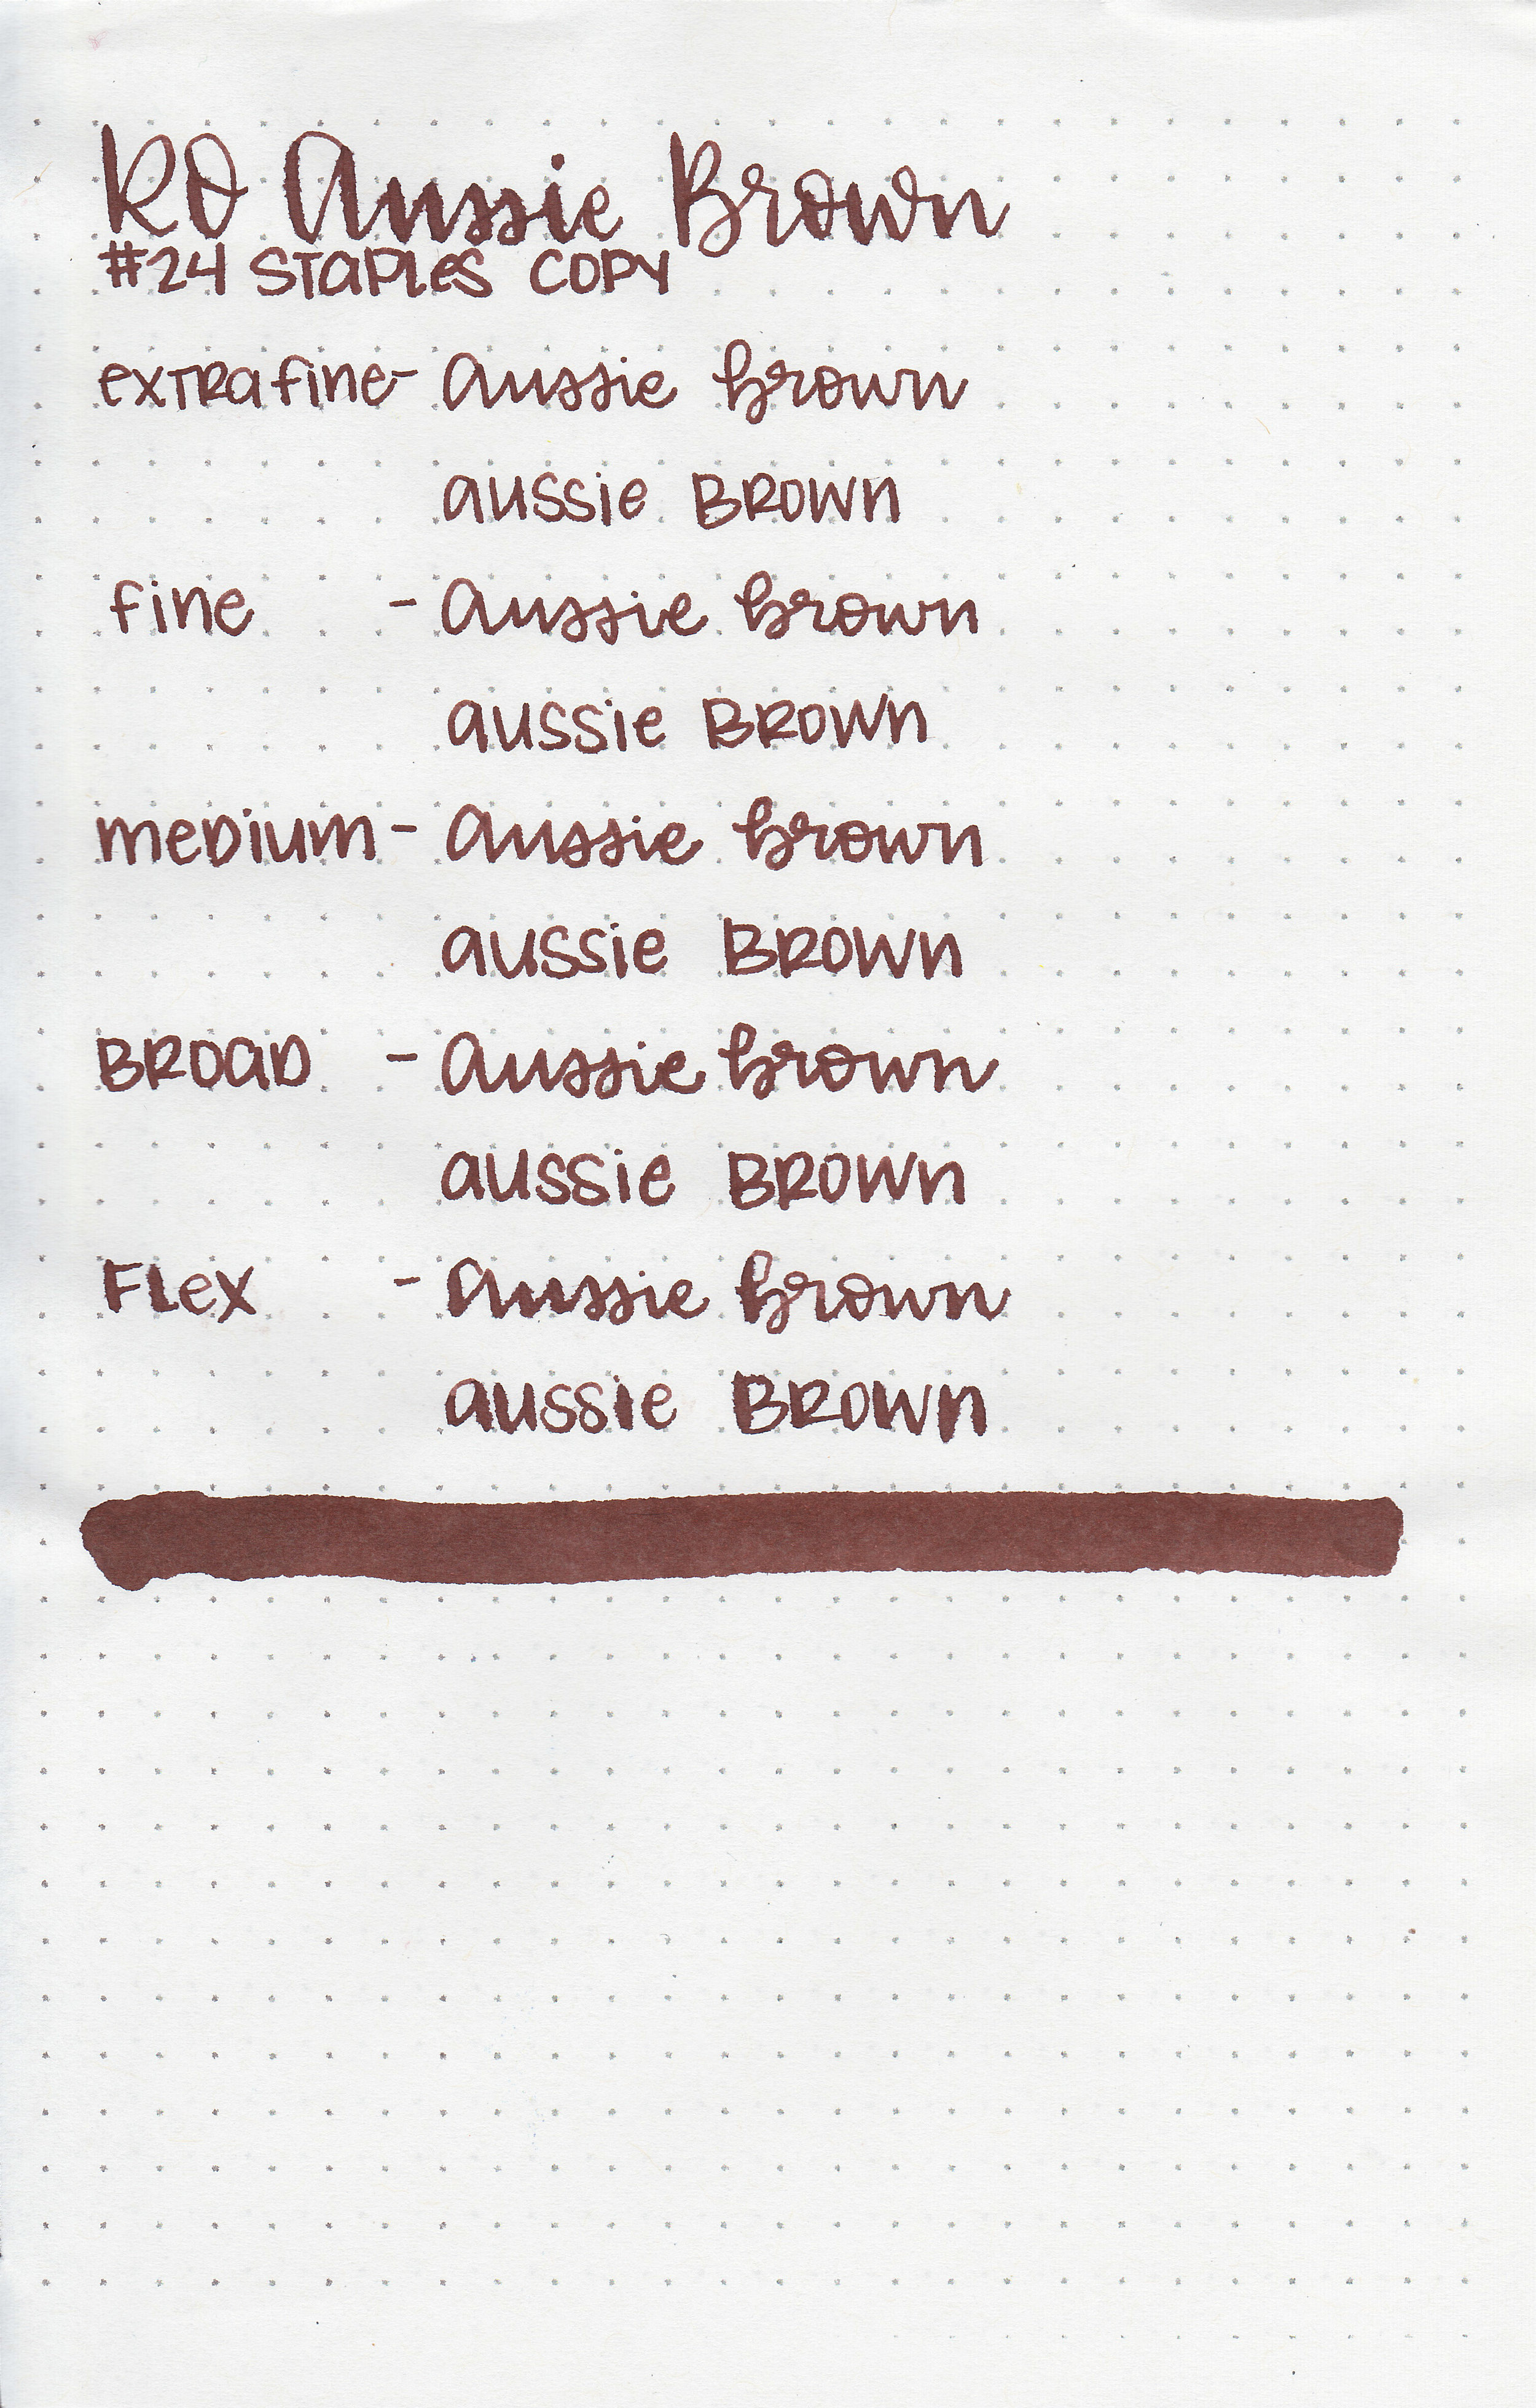 RO Aussie Brown
#24 STAPLES COPY
extra fine - aussie brown
aussie BROWN
fine - aussie brown
aussie BROWN
meDium - aussie brown
aussie BROWN
BROaD - aussie brown
aussie BROWN
FLex - aussie brown
aussie BROWN